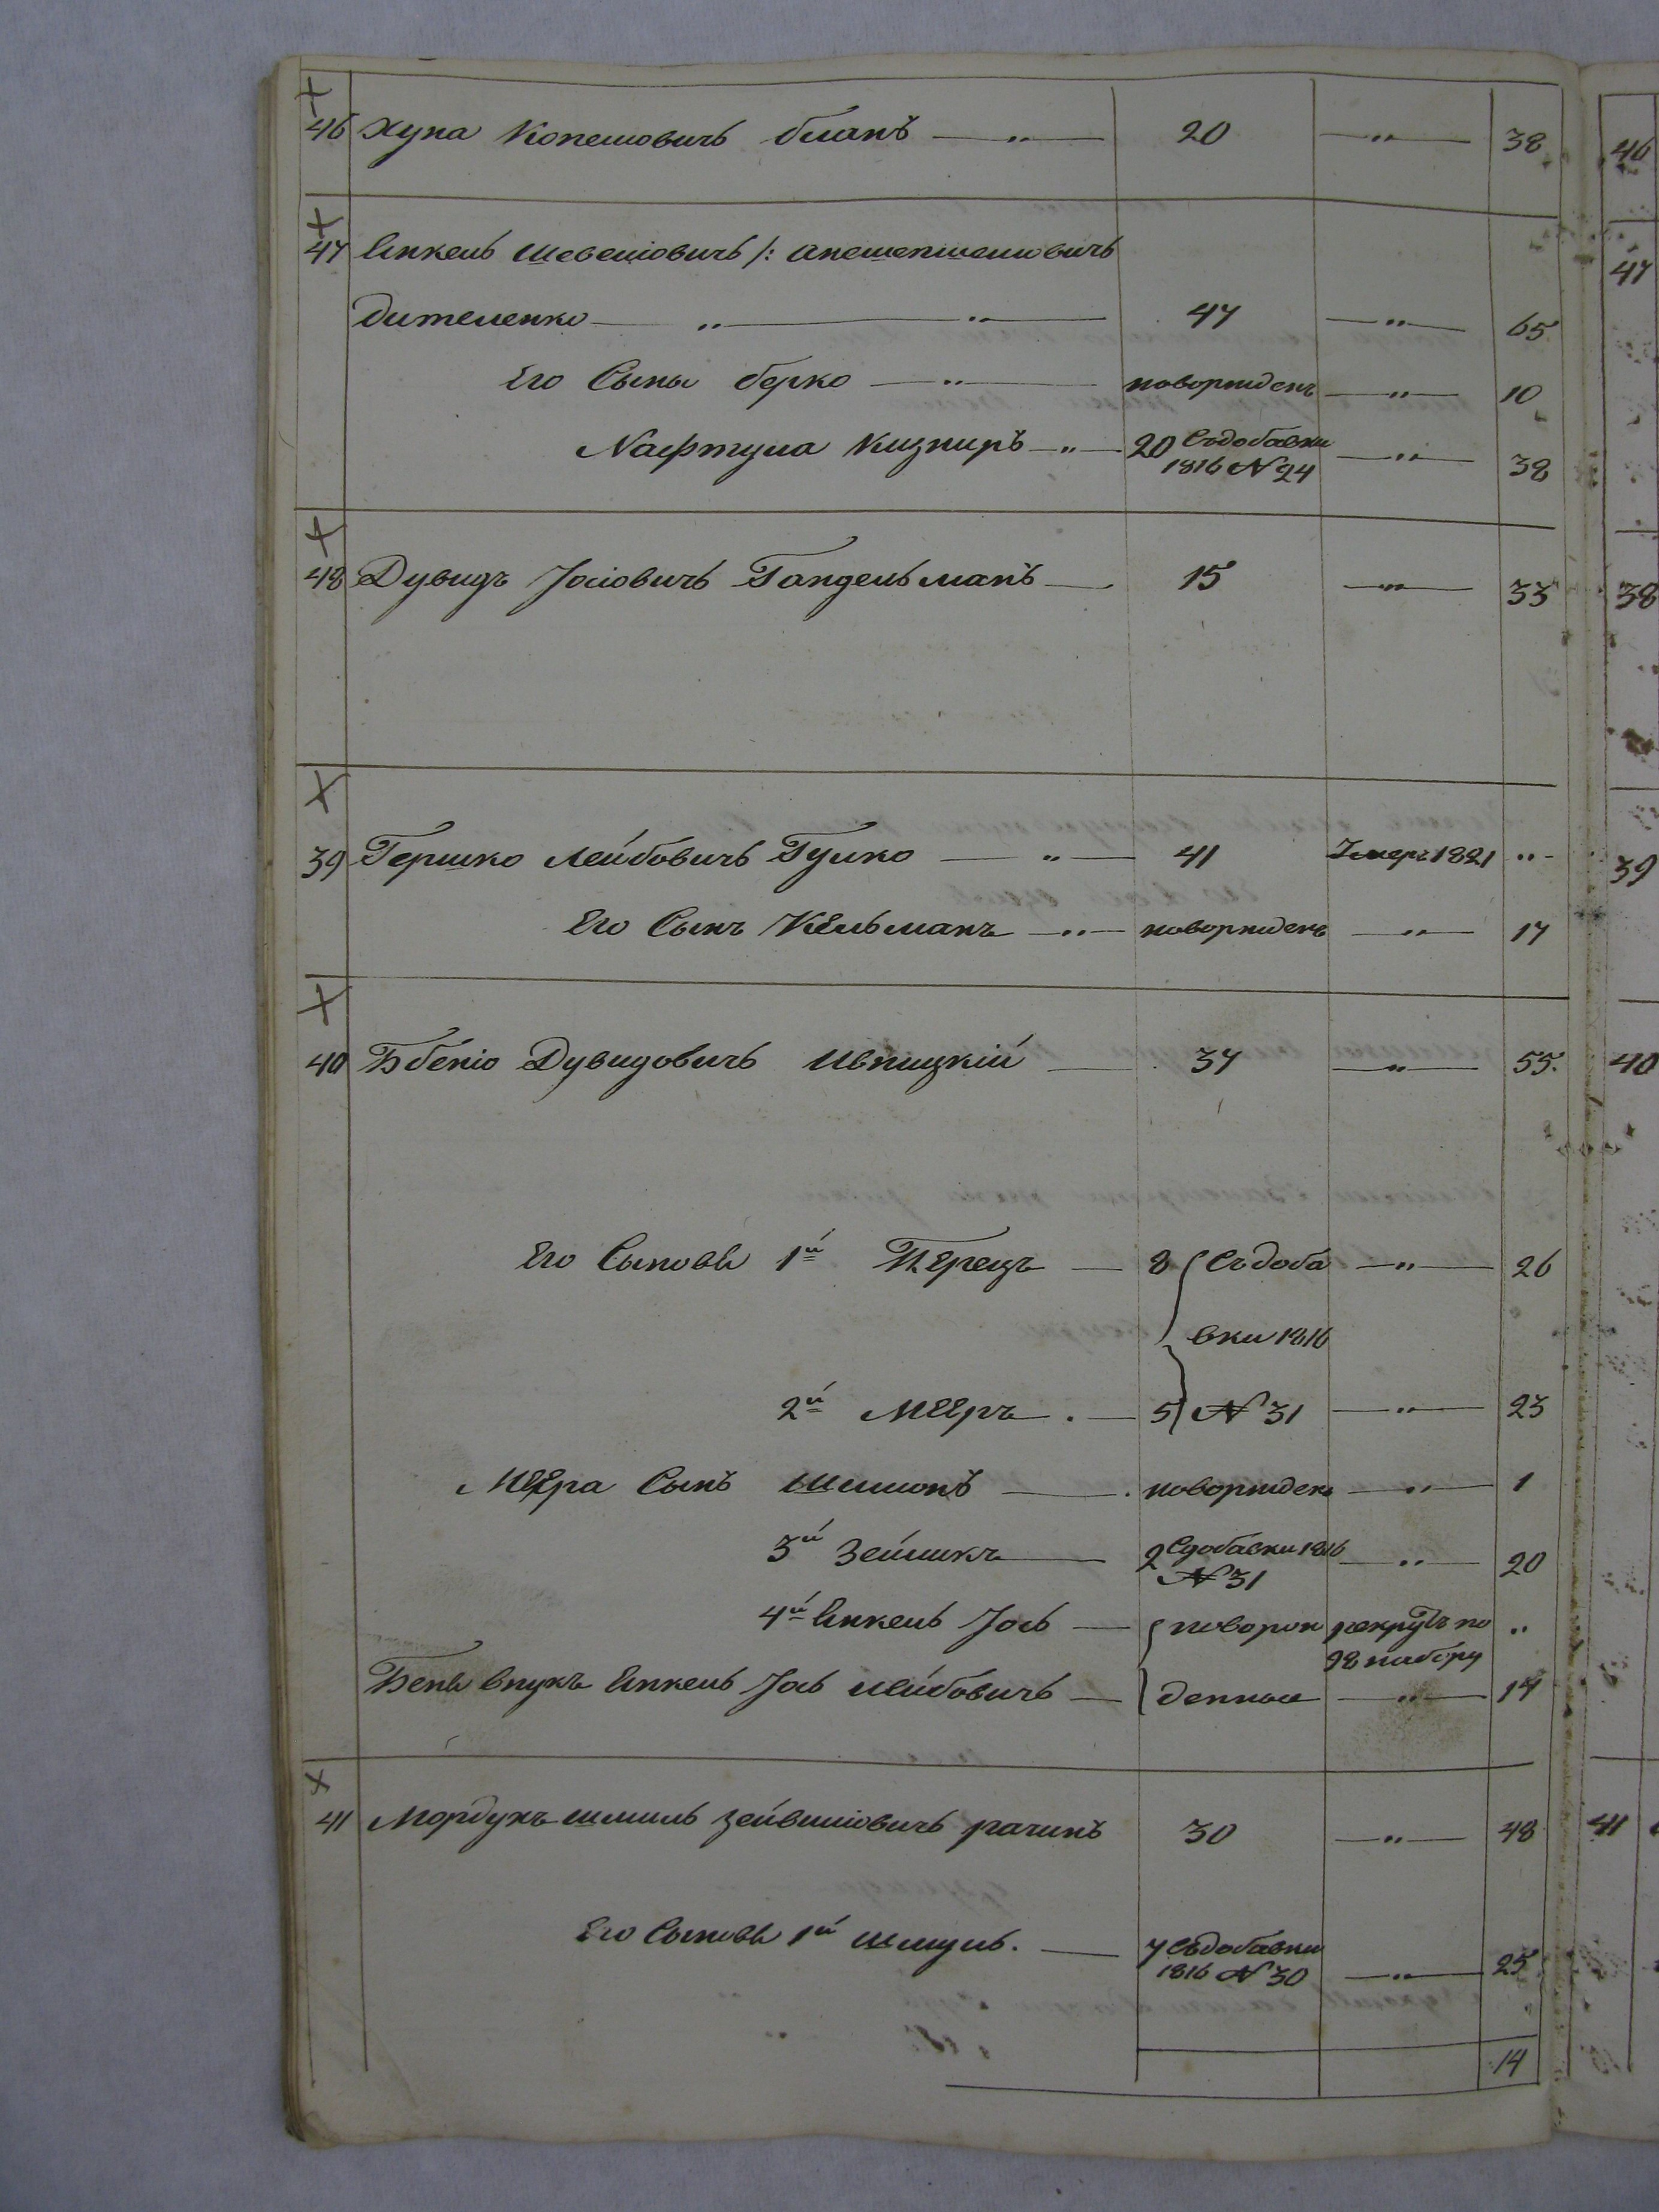 46 Хуна Копелювичъ бланъ — „ — 20 — „ — 38
47 Янкель Шевелiовичъ /:
Дителенко — „ — „ — 47 — „ — 65
Его Сынъ берко — „ — новорожденъ — „ — 10
Нафтула Кизниръ — „ — 20 Съдобавки 1816 N 24 — „ — 38
48 Дувидъ Iосiовичъ Гандельманъ — 15 — „ — 33
39 Гершко Лейбовичъ Гулко — „ — 41 Умеръ 1821 „
Его Сынъ Кельманъ — „ — новорожденъ — „ — 17
40 Бенiо Дувидовичъ Ивницкiй — 37 — „ — 55.
Его Сыновья 1й Перецъ — 8 Съдоба — „ — 26
вки 1816
2й Мееръ . — 5 N 31 — „ — 23
Меера Сынъ Шлиомъ — новорожденъ — „ — 1
3й Зейликъ — 2 Сдобавки 1816 N 31 — „ — 20
4й Янкель Iось — новорож рекрутъ по 98 набору „
Беня внукъ Янкель Iось лейбовичъ — денные — „ — 14
41 Мордухъ шмиль зейвилiовичъ рачинъ 30 — „ — 48
Его Сыновья 1й шмуль. — 7 Съдобавки 1816 N 30 — „ — 25
14
46
47
38
39
40
41